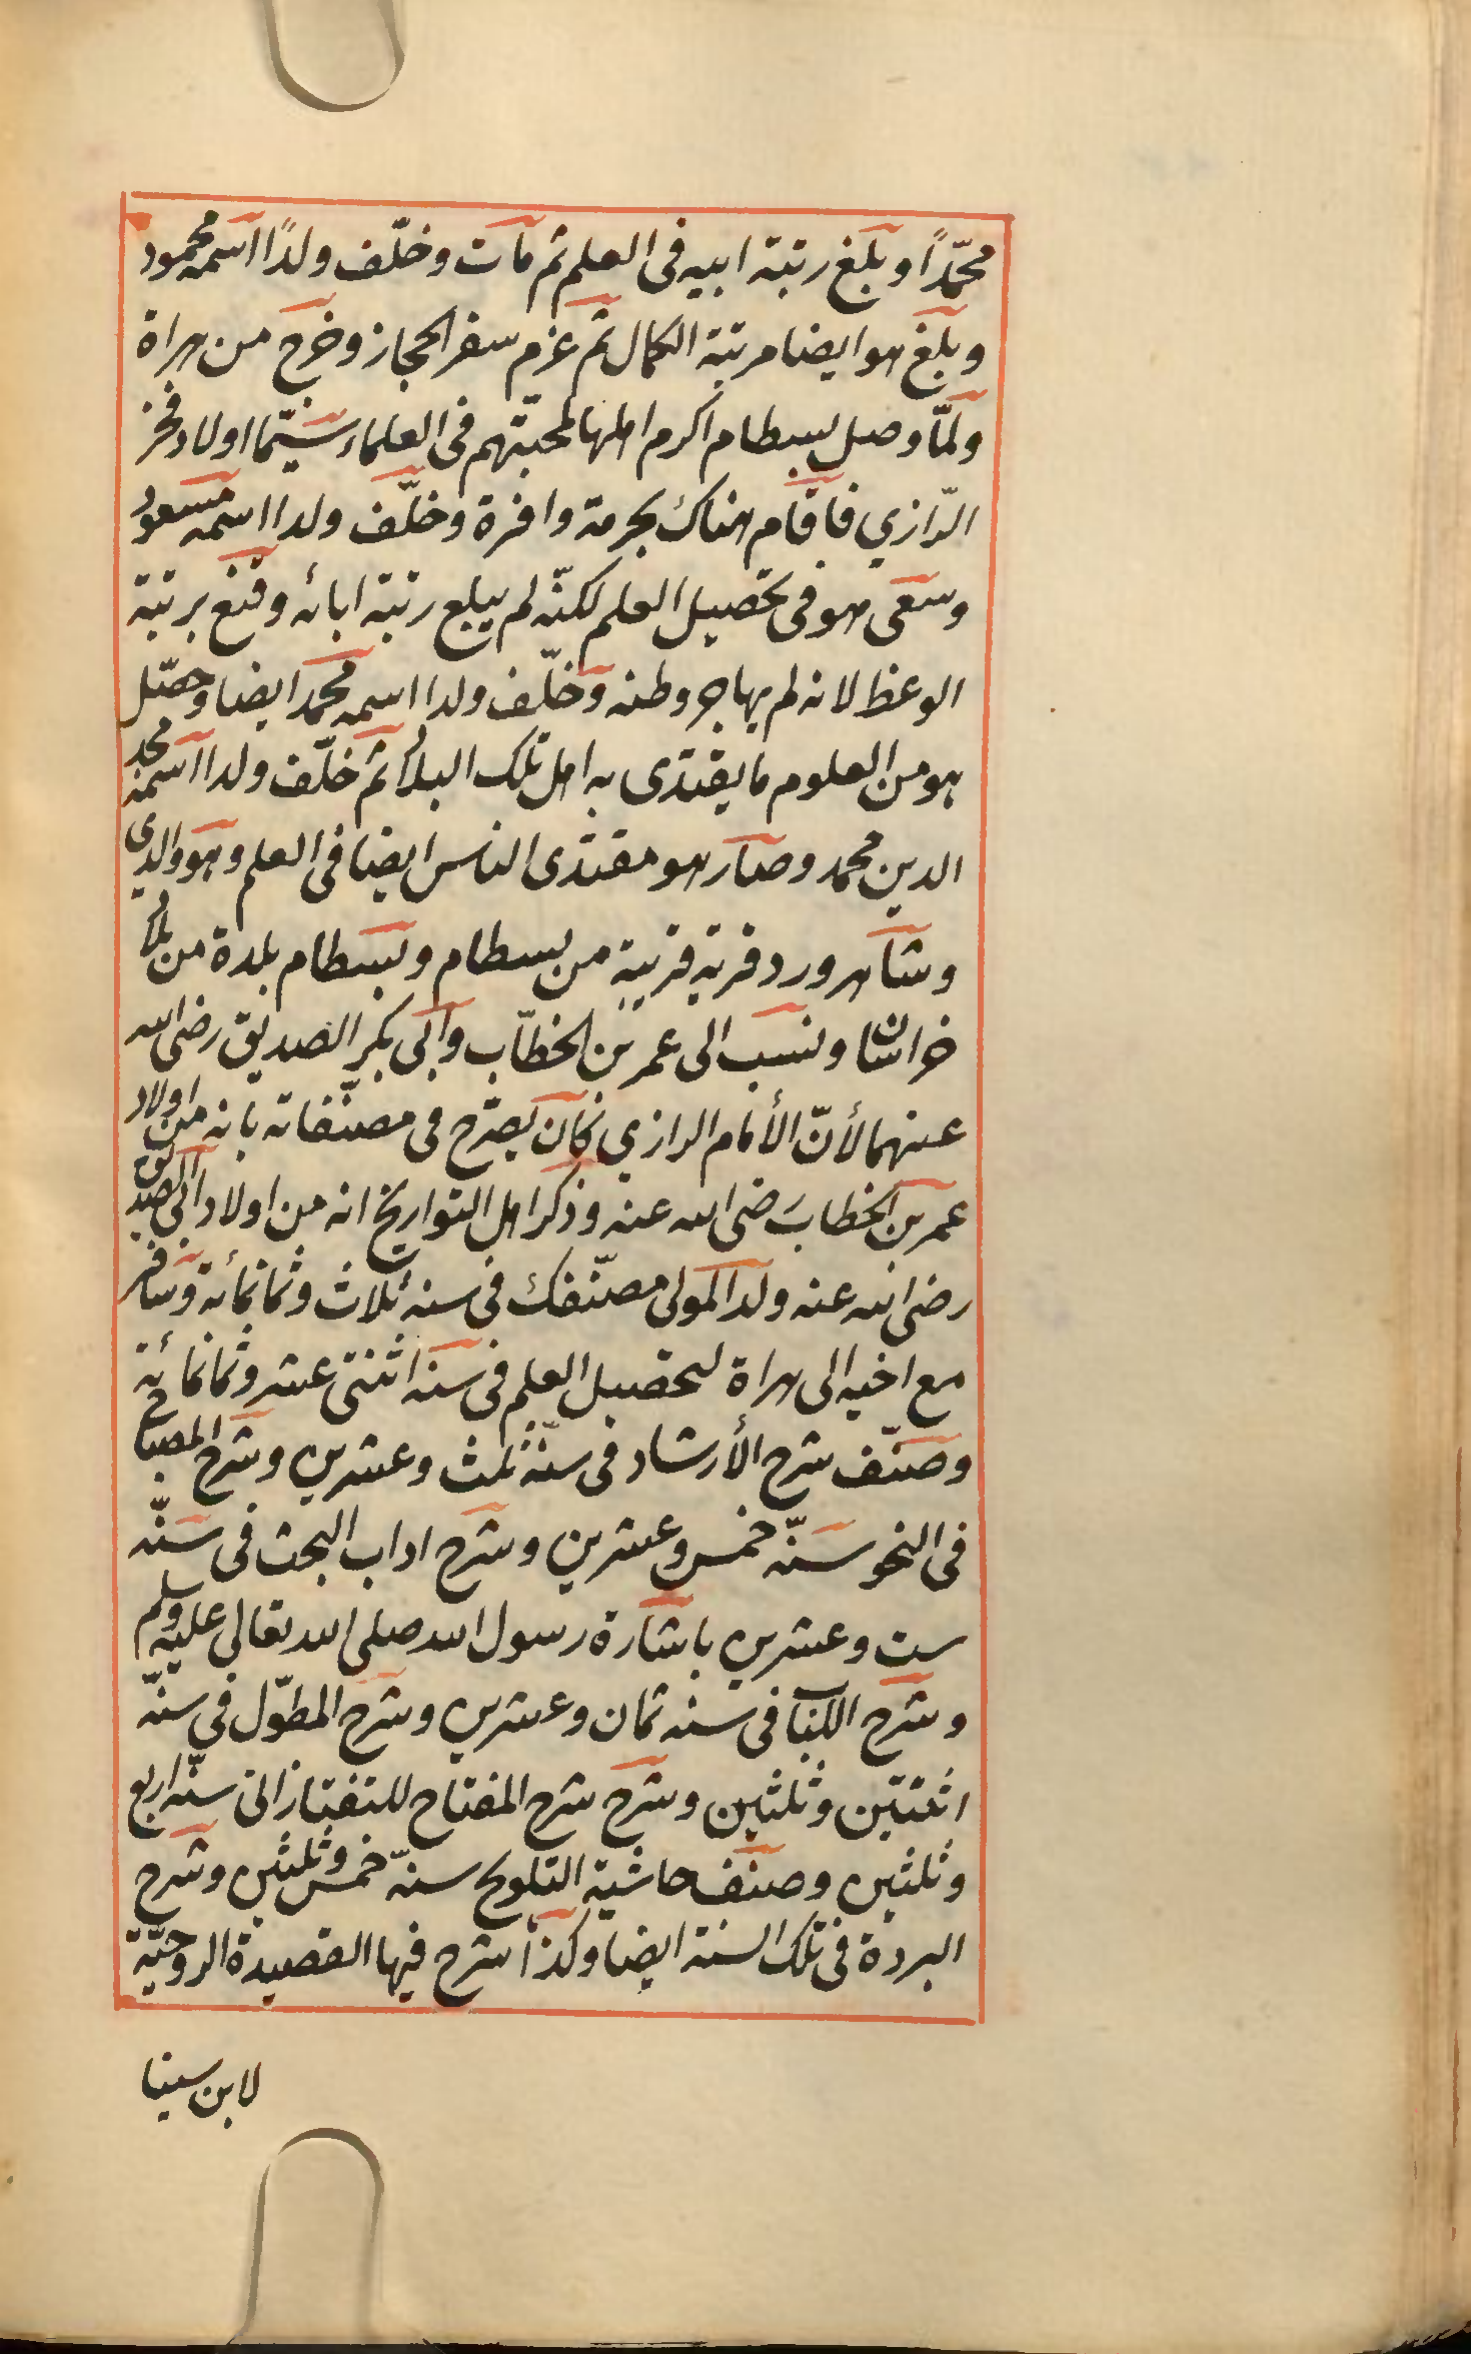 محمّدًا وبلغ رتبة ابيه فى العلم ثم مات وخلّف ولدًا اسمه محمود
وبلغ هو ايضا مرتبة الكمال ثم عزم سفر الحجاز وخرج من هراة
ولمّا وصل بسطام اكرم اهلها لمحبتهم فى العلماء سيّما اولاد فخر
الرّازي فاقام هناك بحرمة وافرة وخلّف ولدا اسمه مسعود
وسعى هو فى تحصيل العلم لكنّه لم يبلع رتبة ابائه وقنع برتبة
الوعظ لانه لم يهاجر وطنه وخلّف ولدا اسمه محمد ايضا وحصّل
هو من العلوم ما يقتدى به اهل تلك البلاد ثم خلّف ولدا اسمه مجد
الدين محمد وصار هو مقتدى الناس ايضا فى العلم وهو والدى
وشاهرورد قرية قريبة من بسطام وبسطام بلدة من بلاد
خراسان ونسب الى عمر بن الخطّاب وابى بكر الصديق رضى الله
عنهما لأنّ الأمام الرازي كان يصرّح فى مصنّفاته بانه من اولاد
عمر بن الخطاب رضى الله عنه وذكر اهل التواريخ انه من اولاد ابى الصديق
رضى الله عنه ولد المولى مصنّفك فى سنة ثلاث وثمانمائة وسافر
مع اخيه الى هراة لتحصيل العلم فى سنة اثنتى عشر وثمانمائة
وصنّف شرح الأرشاد فى سنة ثلث وعشرين وشرح المصباح
فى النحو سنة خمس وعشرين وشرح اداب البحث فى سنة
ست وعشرين باشارة رسول الله صلى الله تعالى عليه وسلم
وشرح اللباب فى سنة ثمان وعشرين وشرح المطوّل فى سنة
اثنتين وثلثين وشرح شرح المفتاح للتفتازانى سنة اربع
وثلثين وصنف حاشية التلويح سنة خمس وثلثين وشرح
البردة فى تلك السنة ايضا وكذا شرح فيها القصيدة الروحيّة
لابن سينا